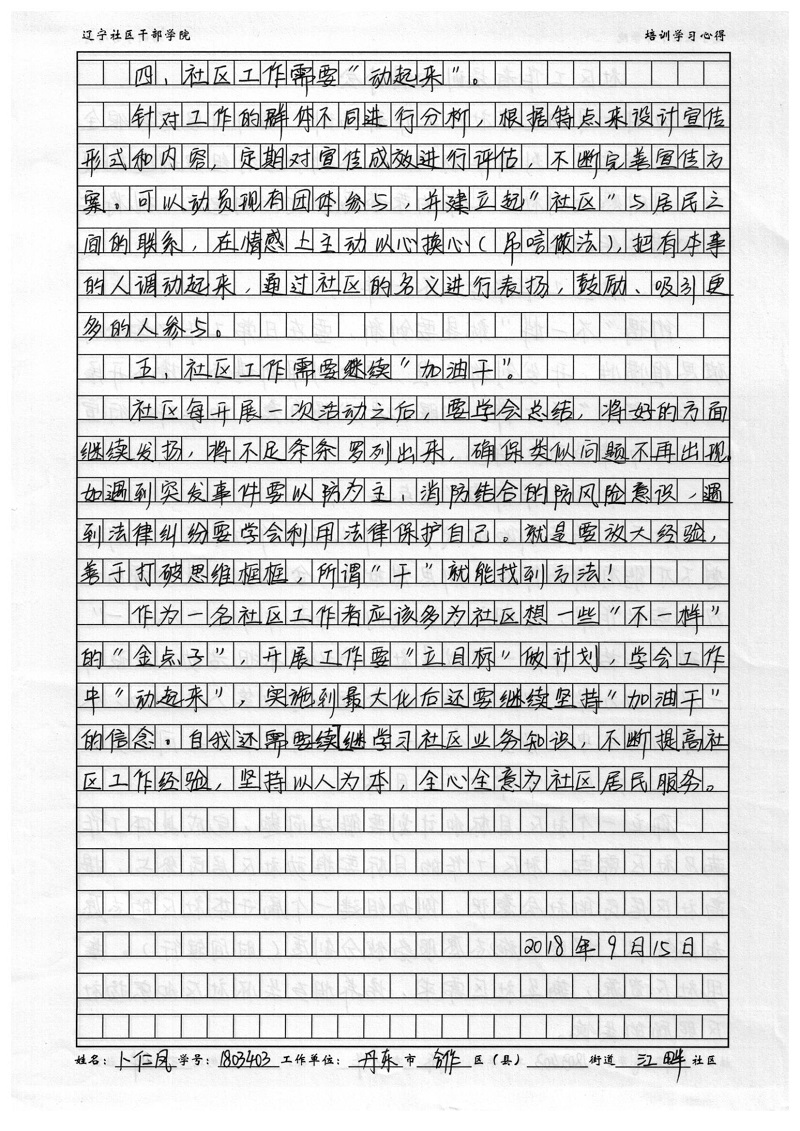 辽宁社区干部学院 培训学习心得
四、社区工作需要“动起来”。
针对工作的群体不同进行分析，根据特点来设计宣传
形式和内容，定期对宣传成效进行评估，不断完善宣传方
案。可以动员现有团体参与，并建立起“社区”与居民之
间的联系，在情感上主动以心换心（吊唁做法），把有本事
的人调动起来，通过社区的名义进行表扬，鼓励、吸引更
多的人参与。
五、社区工作需要继续“加油干”。
社区每开展一次活动之后，要学会总结，将好的方面
继续发扬，将不足条条罗列出来，确保类似问题不再出现。
如遇到突发事件要以防为主，消防结合的防风险意识，遇
到法律纠纷要学会利用法律保护自己。就是要放大经验，
善于打破思维框框，所谓“干”就能找到方法！
作为一名社区工作者应该多为社区想一些“不一样”
的“金点子”，开展工作要“立目标”做计划，学会工作
中“动起来”，实施到最大化后还要继续坚持“加油干”
的信念。自我还需要续继学习社区业务知识，不断提高社
区工作经验，坚持以人为本，全心全意为社区居民服务。
2018年9月15日
姓名：卜仁凤 学号：1803403 工作单位：丹东市 区（县） 街道 江畔 社区